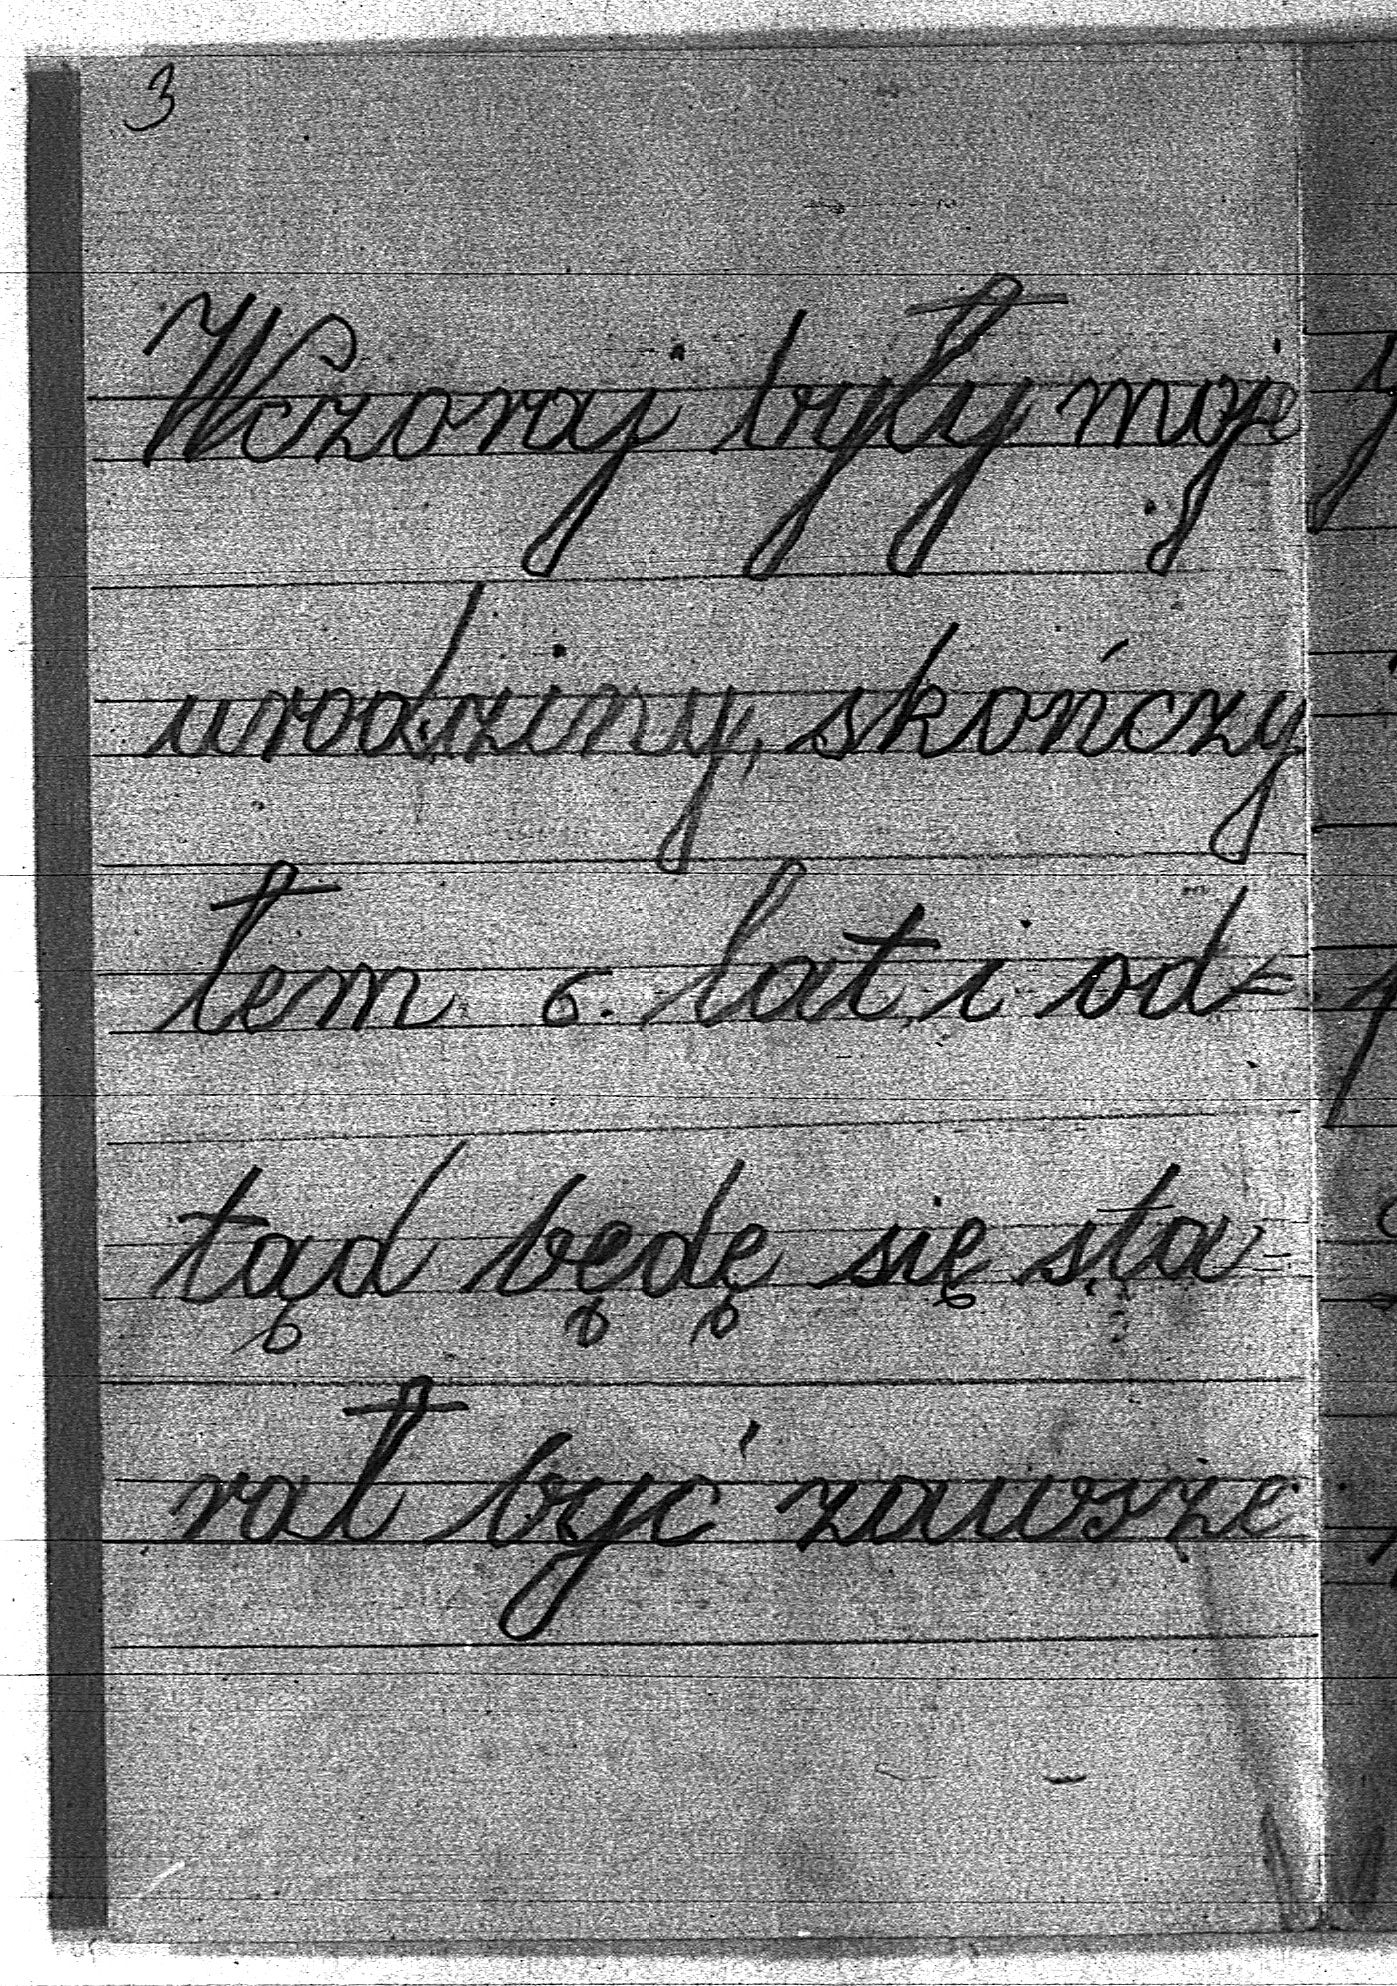 3
Wczoraj były moje
urodziny, skończy
łem 6. lat i od=
tąd będę się sta=
rał być zawsze